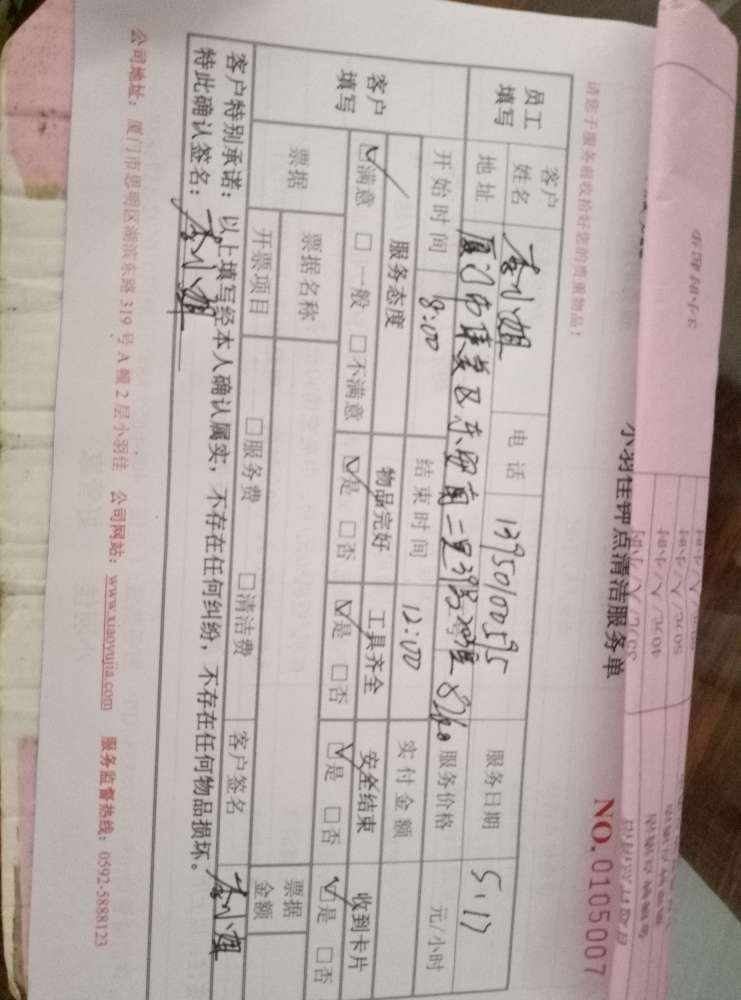 小羽佳钟点清洁服务单
NO.0105007
请您于服务前收拾好您的贵重物品！
员工填写 客户姓名 李小姐 电话 13950100595 服务日期 5.17
地址 厦门市集美区 服务价格 元/小时
开始时间 8:00 结束时间 12:00 实付金额
客户填写 服务态度 物品完好 工具齐全 安全结束 收到卡片
☑满意 □一般 □不满意 ☑是 □否 ☑是 □否 ☑是 □否 ☑是 □否
票据 票据名称 票据金额
开票项目 □服务费 □清洁费 客户签名 李小姐
客户特别承诺：以上填写经本人确认属实，不存在任何纠纷，不存在任何物品损坏。
特此确认签名：李小姐
公司地址：厦门市思明区湖滨东路319号A幢2层小羽佳 公司网站：www.xiaoyujia.com 服务监督热线：0592-5888123